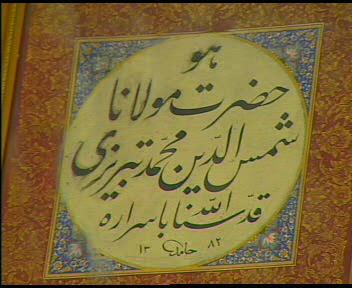 هو
حضرت مولانا
شمس الدین محمد تبریزی
قدسنا الله باسراره
۱۳ حامد ۸۲